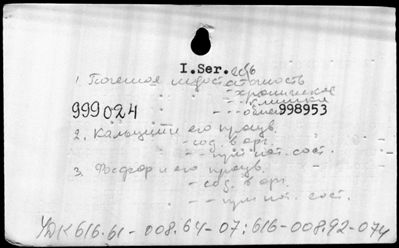 I.Ser.
1. Почечная недостаточность
- хроническая
- - клиника
999024 - - обмен 998953
2. Кальций и его произв.
- сод. в орг.
- - при пат. сост.
3. Фосфор и его произв.
- сод. в орг.
- - при пат. сост.
УДК 616.61-008.64-07:616-008.92-074